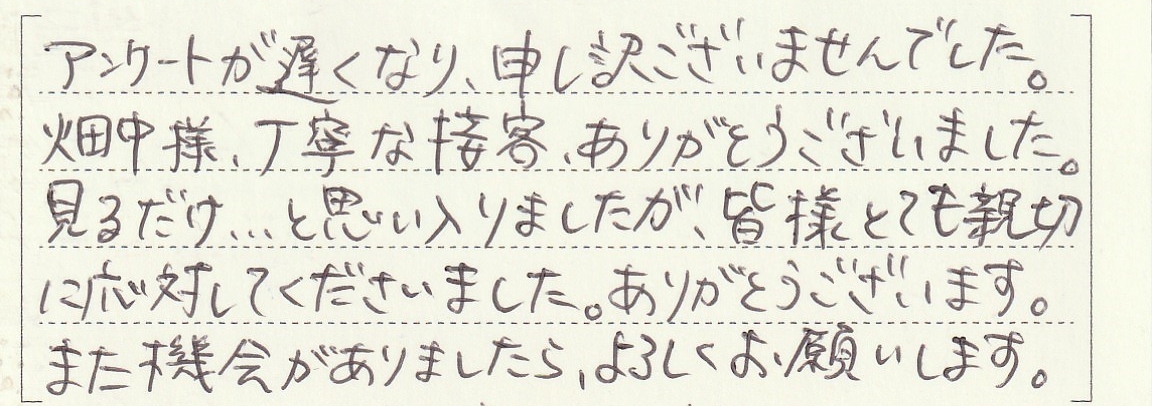 アンケートが遅くなり、申し訳ございませんでした。
畑中様、丁寧な接客、ありがとうございました。
見るだけ...と思い入りましたが、皆様とても親切
に応対してくださいました。ありがとうございます。
また機会がありましたら、よろしくお願いします。